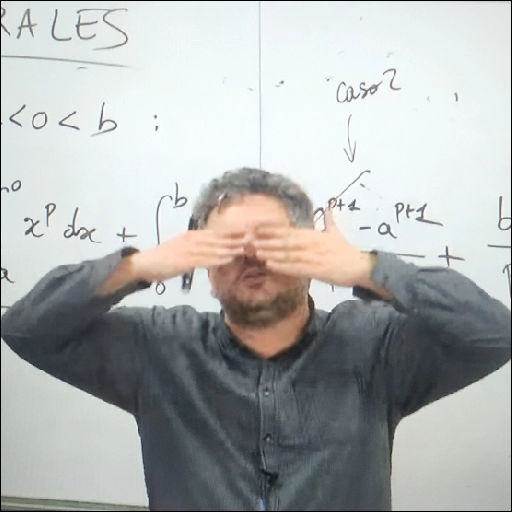 RALES
<0<b :
caso 2
∫ b x^p dx + 0
p+1 - a^p+1 + b
a